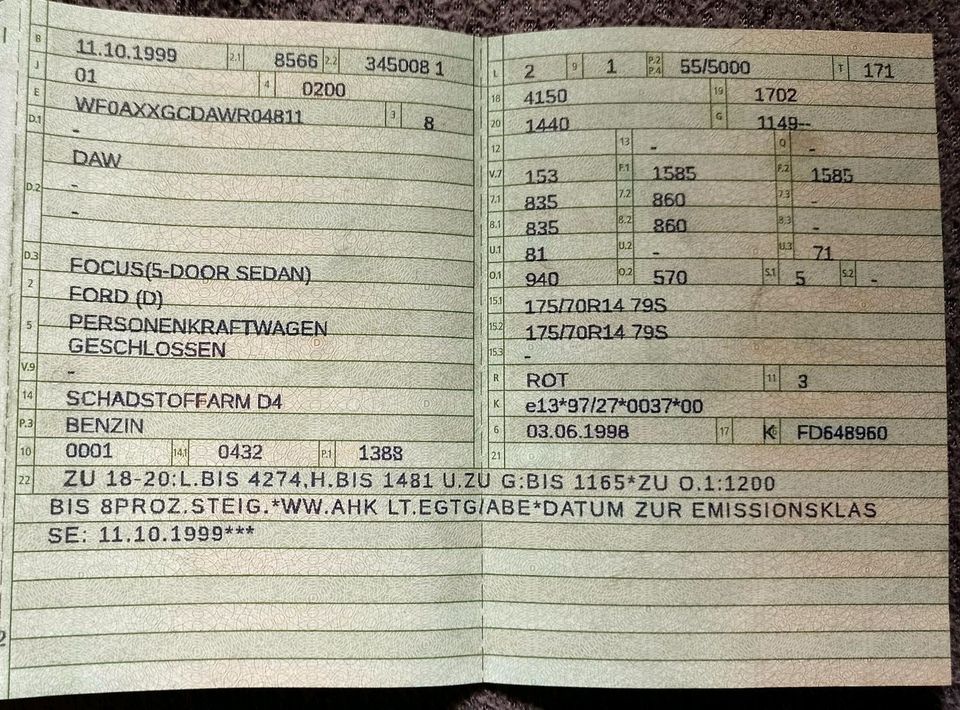 B 11.10.1999 2.1 8566 2.2 345008 1
J 01 4 0200
E WF0AXXGCDAWR04811 3 8
D.1 -
DAW
D.2 -
-
D.3 FOCUS(5-DOOR SEDAN)
2 FORD (D)
5 PERSONENKRAFTWAGEN
GESCHLOSSEN
V.9 -
14 SCHADSTOFFARM D4
P.3 BENZIN
10 0001 14.1 0432 P.1 1388
L 2 9 1 P.2 P.4 55/5000 T 171
18 4150 19 1702
20 1440 G 1149--
12 13 - Q -
V.7 153 F.1 1585 F.2 1585
7.1 835 7.2 860 7.3 -
8.1 835 8.2 860 8.3 -
U.1 81 U.2 - U.3 71
O.1 940 O.2 570 S.1 5 S.2 -
15.1 175/70R14 79S
15.2 175/70R14 79S
15.3 -
R ROT 11 3
K e13*97/27*0037*00
6 03.06.1998 17 K 16 FD648960
21
22 ZU 18-20:L.BIS 4274,H.BIS 1481 U.ZU G:BIS 1165*ZU O.1:1200
BIS 8PROZ.STEIG.*WW.AHK LT.EGTG/ABE*DATUM ZUR EMISSIONSKLAS
SE: 11.10.1999***